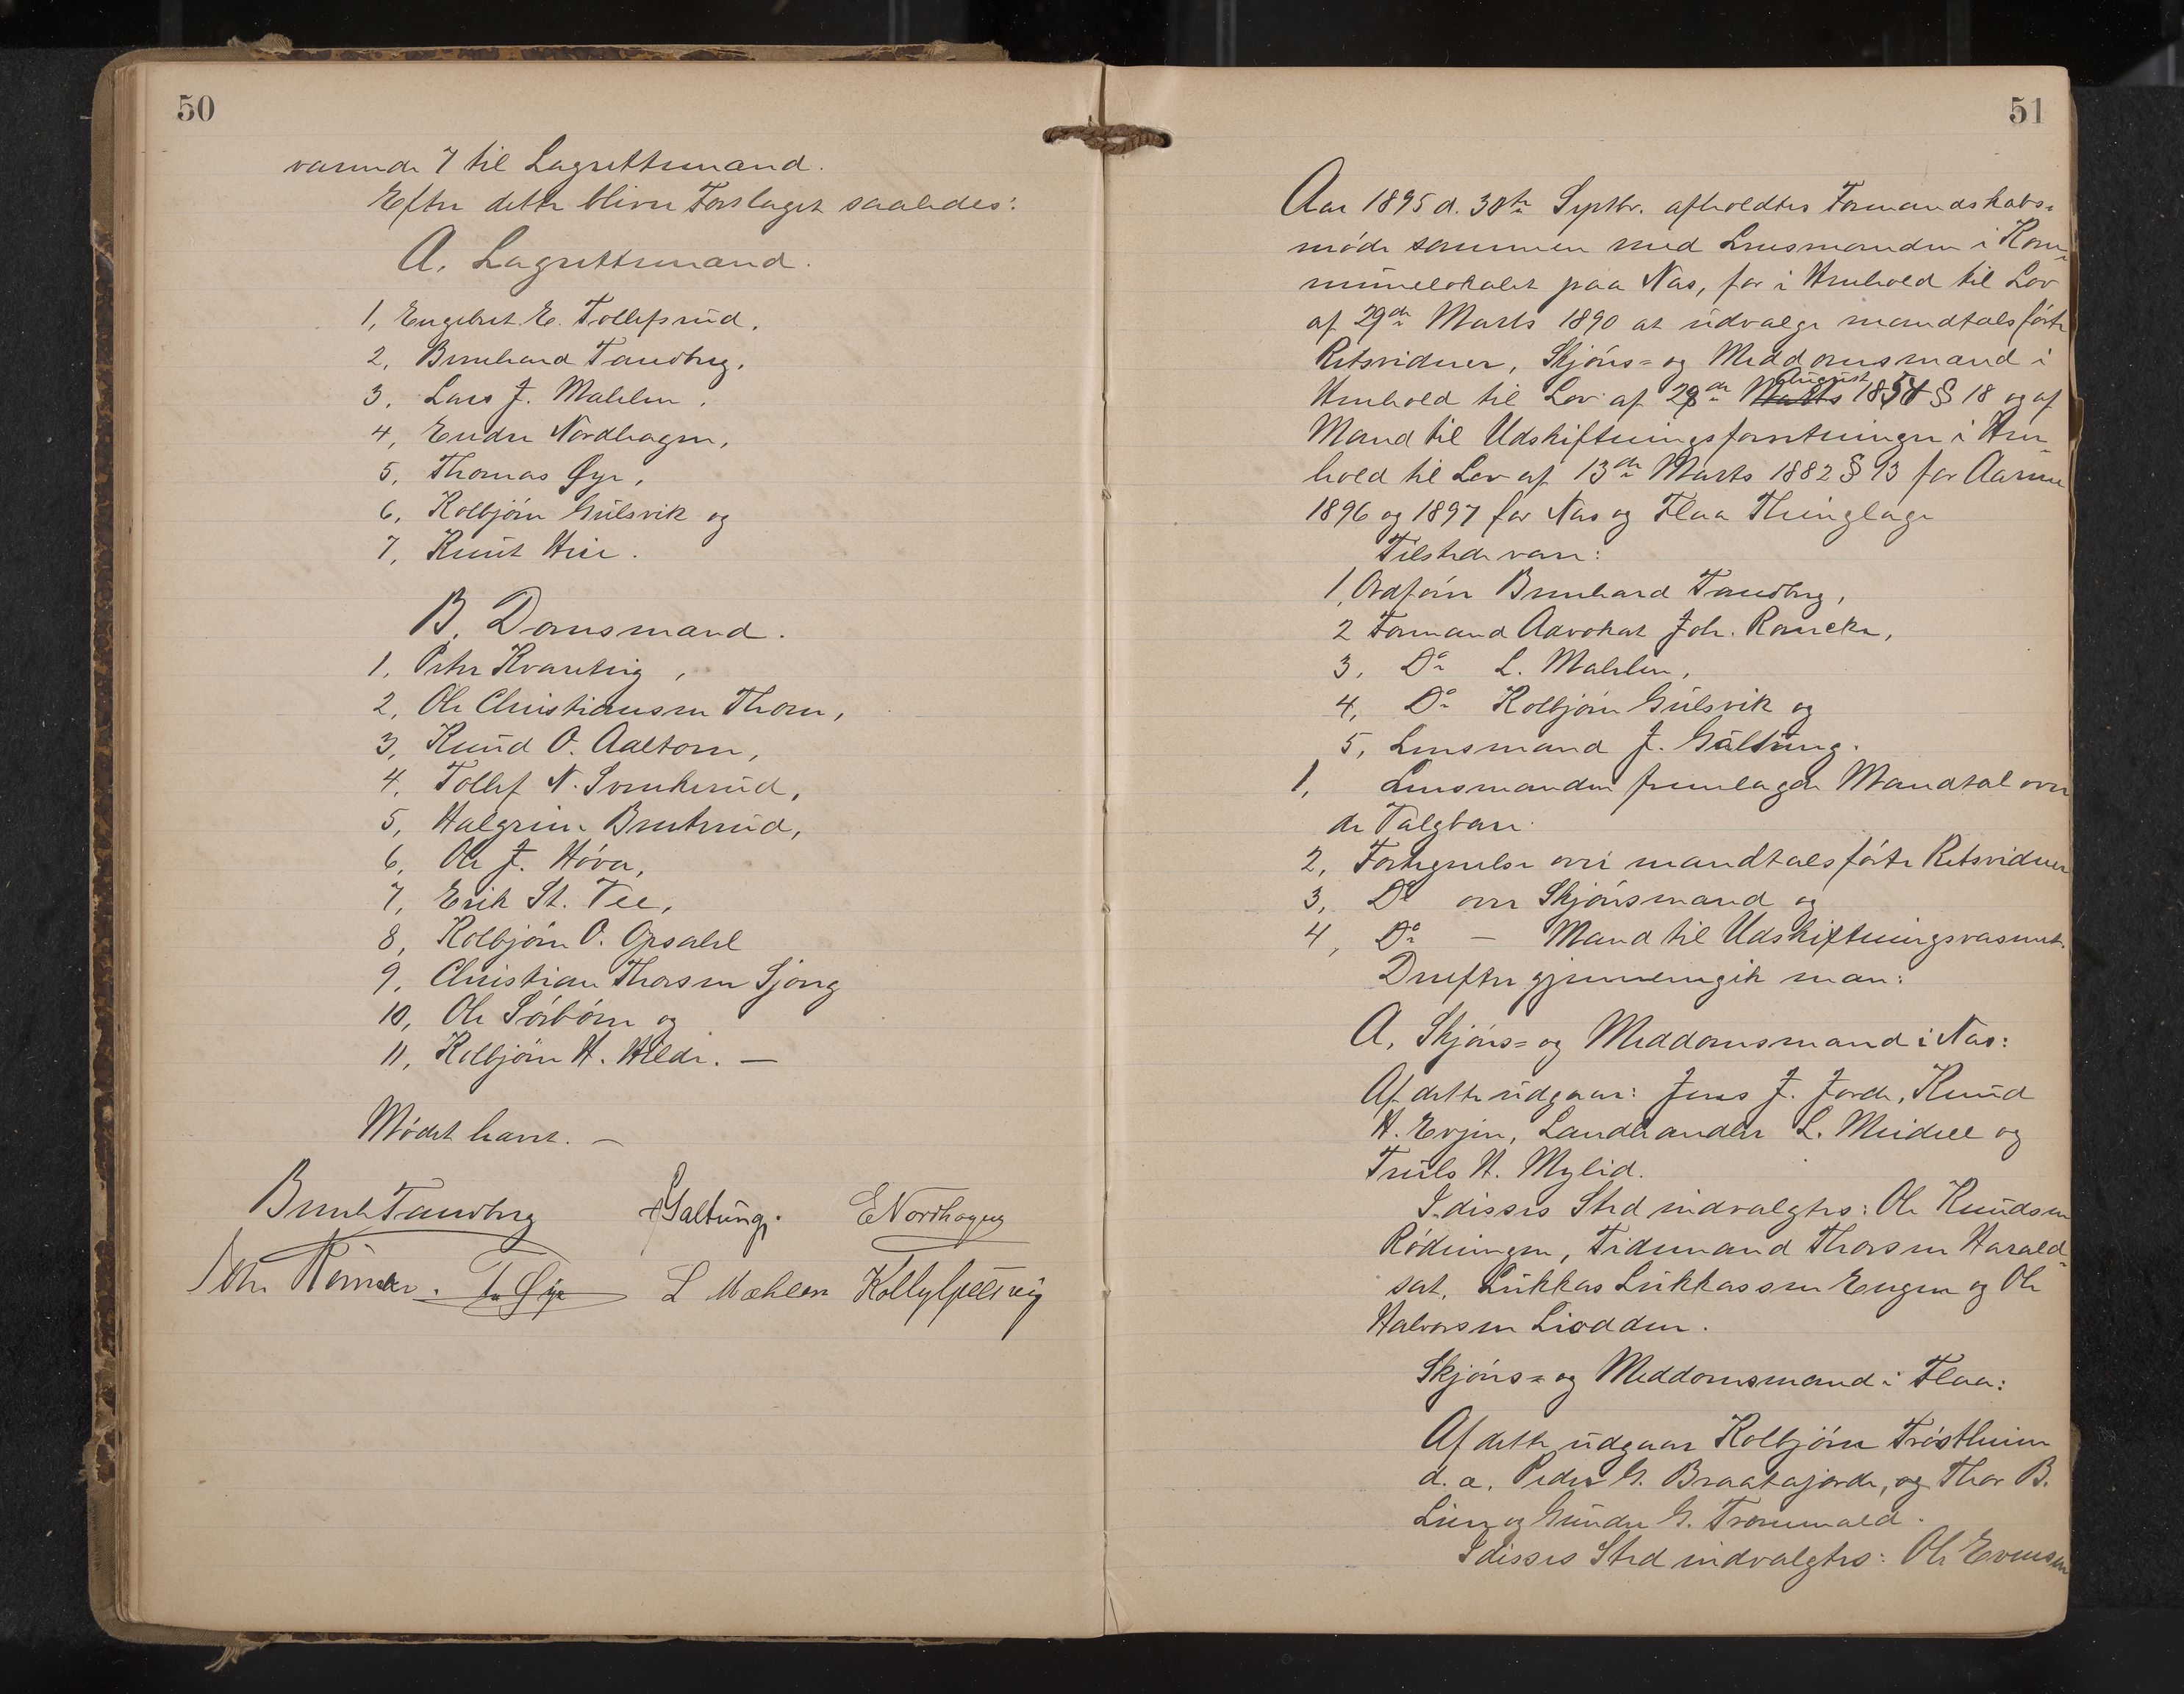 50
værende 7 til Lagrettemænd.
Efter dette bliver Forslaget saaledes:
A. Lagrettemænd.
1, Engebret E. Tollefsrud,
2, Bernhard Tandberg,
3, Lars J. Mæhlen,
4, Endre Nordhagen,
5, Thomas Øye,
6, Kolbjørn Gulsvik og
7, Knut Hiie.
B. Domsmænd.
1, Peter Kvarteig,
2, Ole Christiansen Thom,
3, Knud O. Aaltorn,
4, Tollef N. Svenkerud,
5, Halgrim Breterud,
6, Ole J. Høva,
7, Erik St. Vee,
8, Kolbjørn O. Opsahl
9, Christian Thorsen Sjong
10, Ole Sørbøen og
11, Kolbjørn H. Hilde. —
Mødet hævet. —
Bernh Tandberg JGaltung. ENordhagen
Joh. Römcke. Th Øye L Mæhlen Kolbj Gulsvig
51
Aar 1895 d. 30te Septbr. afholdtes Formandskabs-
møde sammen med Lensmanden i Kom-
munelokalet paa Næs, for i Henhold til Lov
af 29de Marts 1890 at udvælge mandtalsførte
Retsvidner, Skjøns= og Meddomsmænd i
Henhold til Lov af 28de August 1854 § 18 og af
Mænd til Udskiftningsforretninger i Hen-
hold til Lov af 13de Marts 1882 § 93 for Aarene
1896 og 1897 for Næs og Flaa Thinglage
Tilstede vare:
1, Ordfører Bernhard Tandberg,
2 Formand Advokat Joh. Romcke,
3, Do L. Mæhlen,
4, Do Kolbjørn Gulsvik og
5, Lensmand J. Galtung.
1, Lensmanden fremlagde Mandtal over
de Valgbare.
2, Fortegnelse over mandtalsførte Retsvidner
3, Do over Skjønsmænd og
4, Do — Mænd til Udskiftningsvæsenet.
Derefter gjennemgik man:
A, Skjøns= og Meddomsmænd i Næs:
Af dette udgaar: Jens J. Jorde, Knud
H. Evjen, Landhandler L. Meidell og
Truls H. Mylid.
I disses Sted indvalgtes: Ole Knudsen
Rødningen, Tidemand Thorsen Harald-
set, Lukkas Lukkassen Engen og Ole
Halvorsen Liodden.
Skjøns= og Meddomsmænd i Flaa:
Af dette udgaar Kolbjørn Trøstheim
d. æ. Peder G. Braatajorde, og Thor B.
Lien og Gunder G. Trommald.
I disses Sted indvalgtes: Ole Evensen